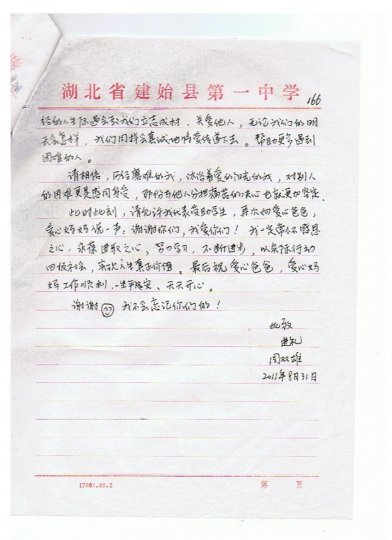 湖北省建始县第一中学
166
给的人生际遇会教我们立志成材、关爱他人，无论我们的明
天会怎样，我们同样会真诚地将爱传递下去。帮助更多遇到
困难的人。
请相信，历经磨难的我，沐浴着爱的阳光的我，对别人
的困难更是感同身受，那份与他人分担痛苦的决心也就更加坚定。
此时此刻，请允许我代表受助学生，再次向爱心爸爸，
爱心妈妈说一声，谢谢你们，我爱你们！我一定常怀感恩
之心，永葆进取之心，努力学习，不断进步，以实际行动
回报社会，实现人生真正价值。最后祝爱心爸爸，爱心妈
妈工作顺利，一生平安、天天开心。
谢谢 我不会忘记你们的！
此致
敬礼
周双雄
2011年8月31日
17001.89.2
第 页